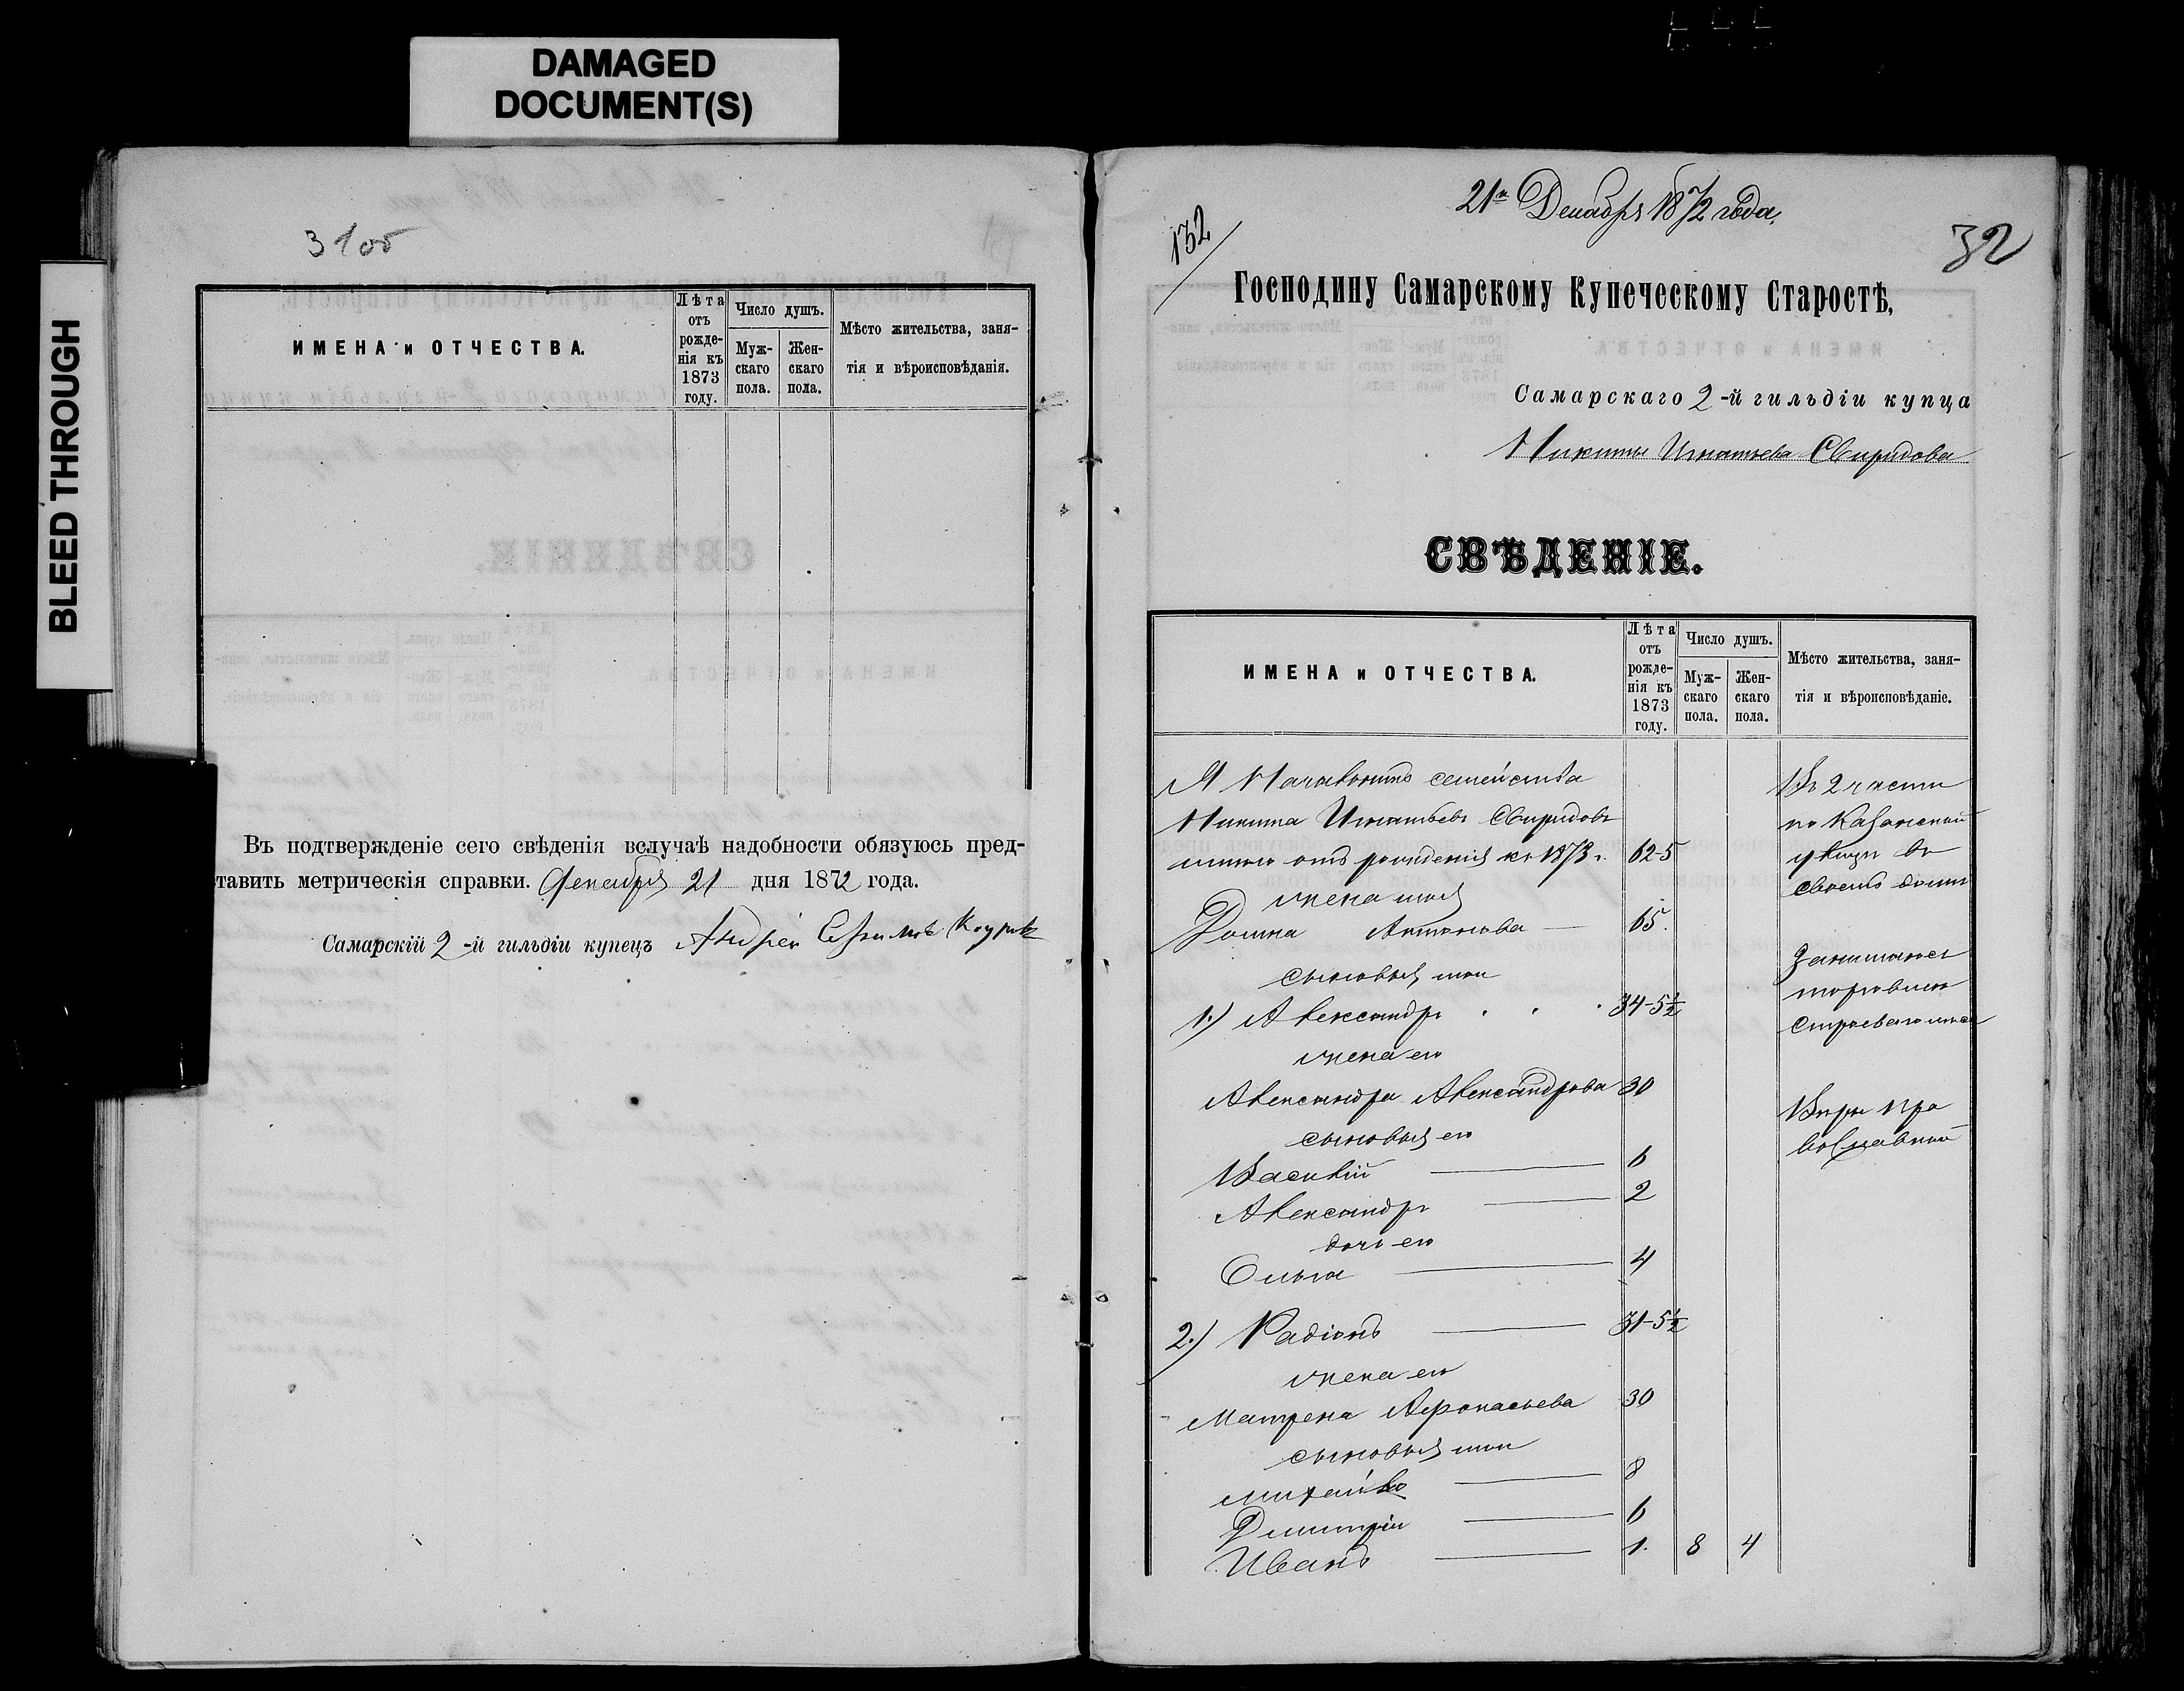 DAMAGED
DOCUMENT(S)
BLEED THROUGH
31об
ИМЕНА и ОТЧЕСТВА.
Лѣта отъ рожде-нія къ 1873 году.
Число душъ.
Муж-скаго пола.
Жен-скаго пола.
Мѣсто жительства, заня-
тія и вѣроисповѣданія.
Въ подтвержденіе сего свѣденія вслучаѣ надобности обязуюсь пред-
тавить метрическія справки. Декабря 21 дня 1872 года.
Самарскій 2-й гильдіи купецъ Андрей
21го Декабря 1872 года,
132
32
Господину Самарскому Купеческому Старостѣ,
Самарскаго 2-й гильдіи купца
Никиты Игнатьева Свиридова
СВѢДЕНІЕ.
ИМЕНА и ОТЧЕСТВА.
Лѣта отъ рожде-нія къ 1873 году.
Число душъ.
Муж-скаго пола.
Жен-скаго пола.
Мѣсто жительства, заня-
тія и вѣроисповѣданіе.
Я семейства
Никита Игнатьевъ Свиридовъ
отъ рожденія къ 1873 г. 62-5
жена моя
Домна Антонова 65.
сыновья мои
1.) Александръ 34-5½
жена его
Александра Александрова 30
сыновья его
Василій 6
Александръ 2
дочь его
Ольга 4
2.) Радіонъ 31-5½
жена его
Матрена Афонасьева 30
сыновья мои
Михайло 8
Дмитрій 6
Иванъ 1. 8 4
Въ 2 части
по Казанской
улицѣ въ
своемъ домѣ
Занимаюсь
торговлею
Вѣры пра
вославной